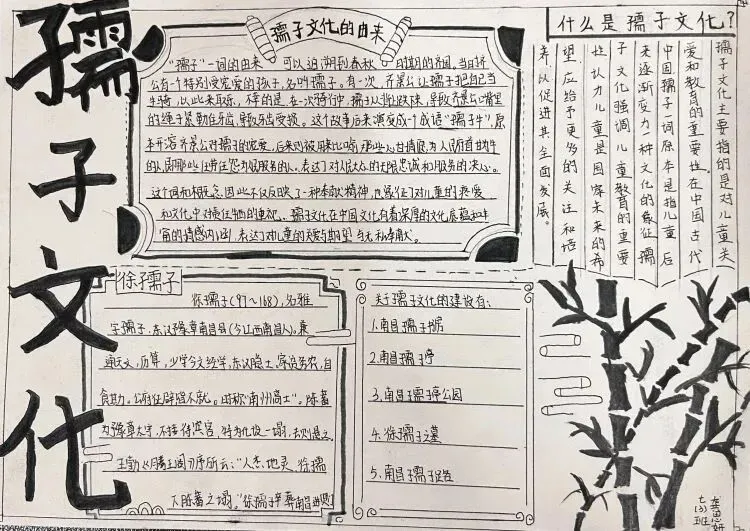 孺子文化
孺子文化的由来
"孺子"一词的由来 可以追溯到春秋 时期的齐国。当时齐
公有一个特别受宠爱的孩子,名叫孺子。有一次,齐景公让孺子把自己当
牛骑,以此来取乐,不幸的是,在一次骑行中,孺子从牛上跌
的绳子紧勒住牙齿,导致牙齿受损。这个故事后来演变成一个成语"孺子牛",原
本形容齐景公对孺子的溺爱,后来则被用来比喻那些心甘情愿为人民
的人,即那些任劳任怨为民服务的人。表达了对人民大众的无限忠诚和服务的决心。
这个词和概念因此不仅反映了一种奉献精神,也象征了对儿童的疼爱
和文化中对责任 的重视。孺子文化在中国文化中有着深厚的文化底蕴和丰
富的情感内涵,表达了对儿童的关爱与期望与无私奉献。
什么是孺子文化?
孺子文化主要指的是对儿童关
爱和教育的重要性在中国古代
中国孺子一词原本是指儿童后
来逐渐变为一种文化的象征孺
子文化强调儿童教育的重要
性认为儿童是国家未来的希
望,应给予更多的关注和培
养以促进其全面发展。
徐孺子
徐孺子(97~168),名稚
字孺子,东汉豫章南昌县(今江西南昌人)。兼
通天文,历算,少学今文经学,东汉隐士,家贫务农,自
食其力。公府征辟皆不就。世称"南州高士"。陈蕃
为豫章太守,不接待宾客,特为他设一榻,去则悬之。
王勃《滕王阁》序所云:"人杰地灵,徐孺
下陈蕃之榻。"徐孺子卒葬南昌进贤
关于孺子文化的建设有:
1.南昌孺子书房
2.南昌孺子亭
3.南昌孺子亭公园
4.徐孺子之墓
5.南昌孺子路
七(3)班